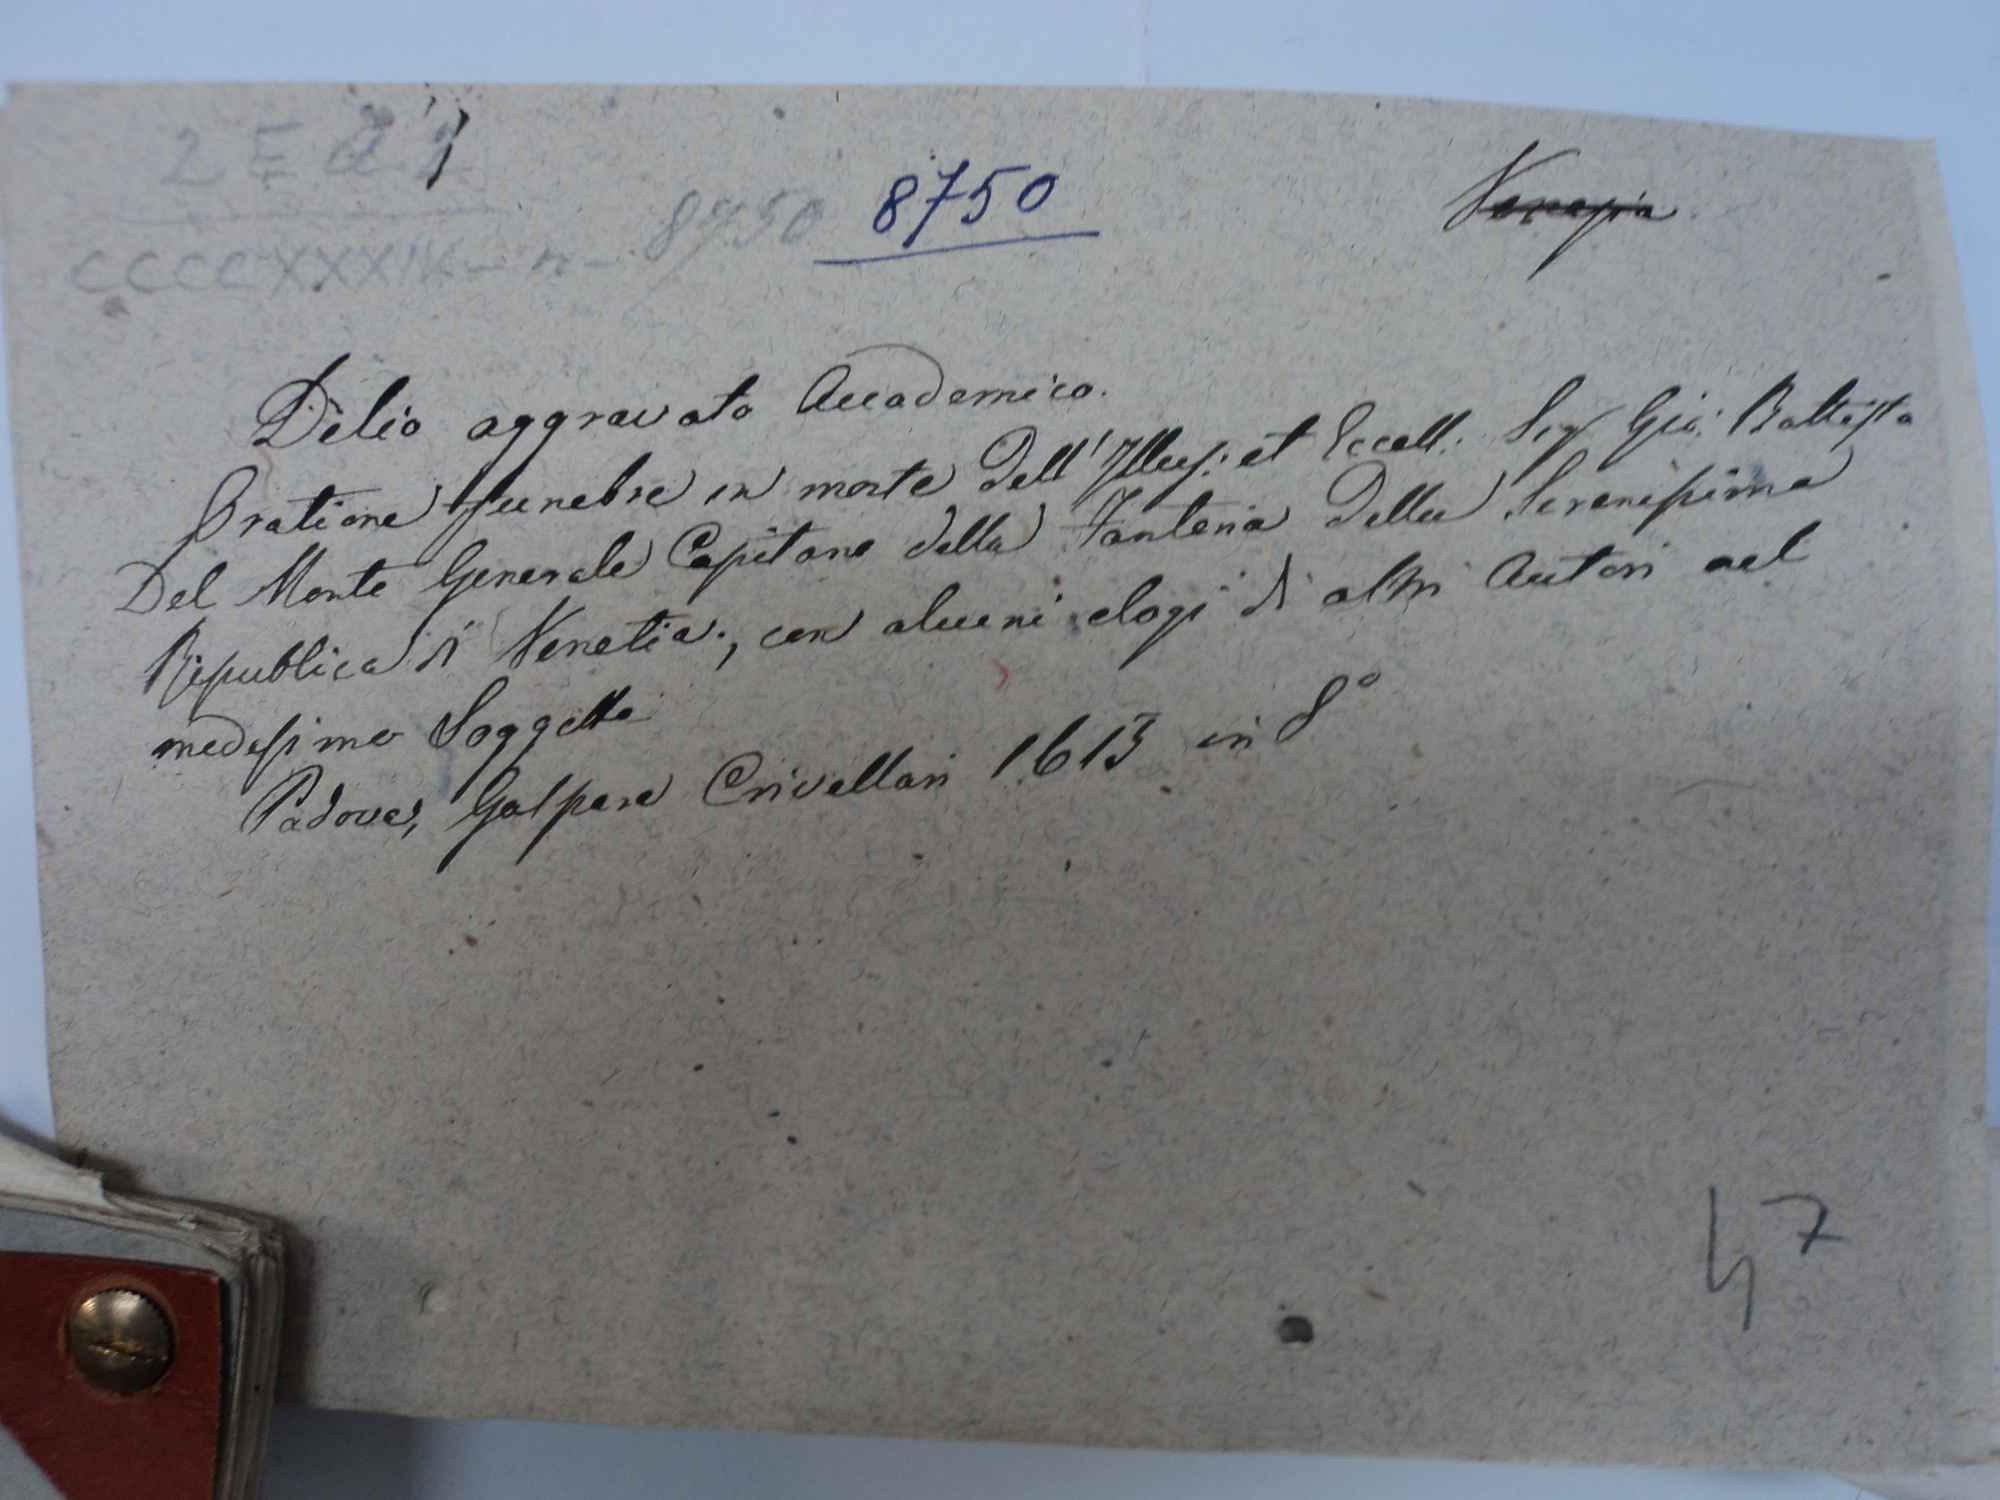 2 E d 1
CCCCXXXIV - n - 8750 8750
Venezia
Delio aggravato Accademico.
Oratione funebre in morte dell' Illus: et Eccell. Sig Gio: Battista
Del Monte Generale Capitano della Fanteria della Serenissima
Republica di Venetia, con alcuni elogi di altri Autori nel
medesimo Soggetto
Padova, Gaspare Crivellari 1613 in 8°
47